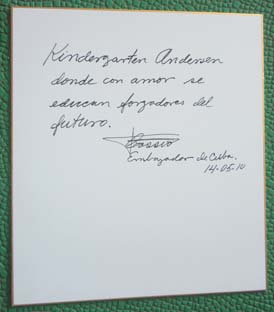 Kindergarten Andersen
donde con amor se
educan forzadores del
futuro.
Cossío
Embajador de Cuba.
14-05-10